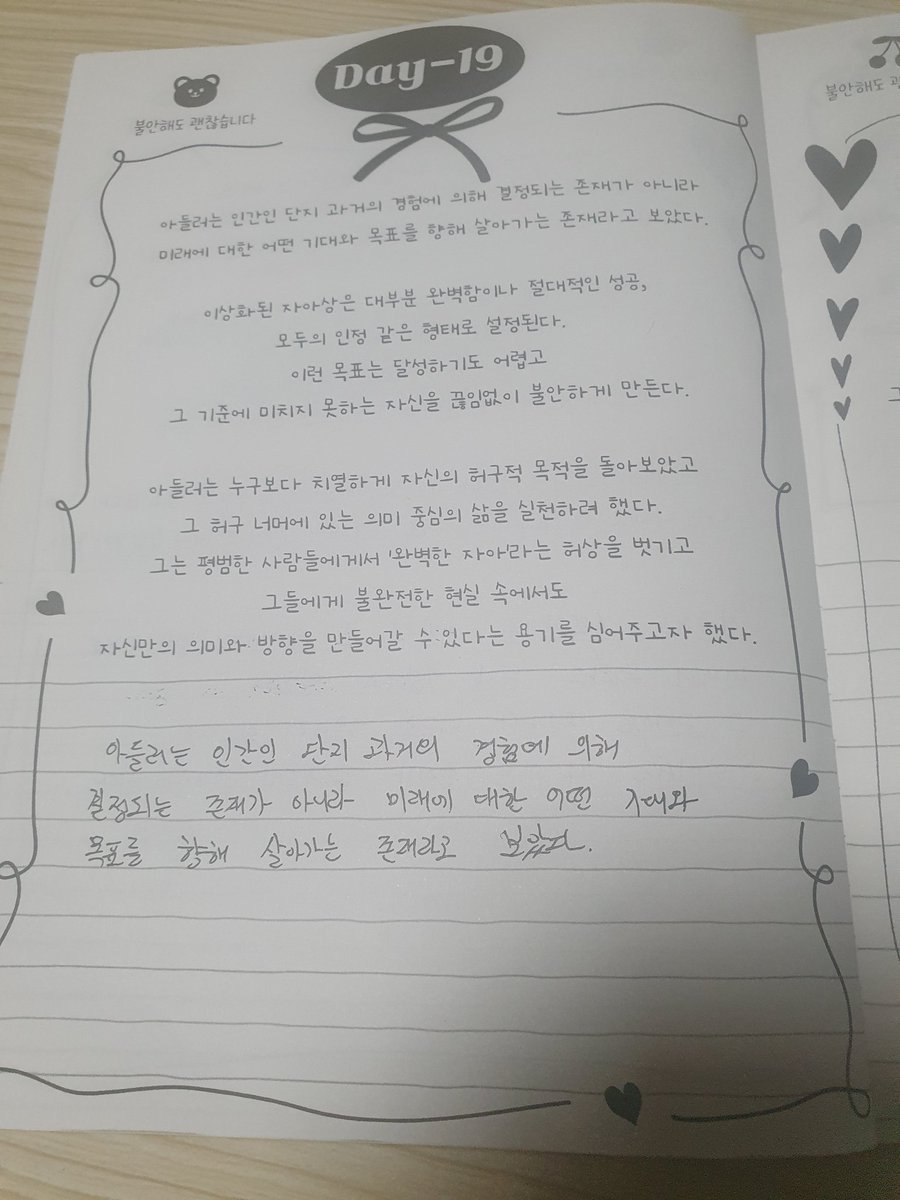 Day-19
불안해도 괜찮습니다
아들러는 인간인 단지 과거의 경험에 의해 결정되는 존재가 아니라
미래에 대한 어떤 기대와 목표를 향해 살아가는 존재라고 보았다.
이상화된 자아상은 대부분 완벽함이나 절대적인 성공,
모두의 인정 같은 형태로 설정된다.
이런 목표는 달성하기도 어렵고
그 기준에 미치지 못하는 자신을 끊임없이 불안하게 만든다.
아들러는 누구보다 치열하게 자신의 허구적 목적을 돌아보았고
그 허구 너머에 있는 의미 중심의 삶을 실천하려 했다.
그는 평범한 사람들에게서 '완벽한 자아'라는 허상을 벗기고
그들에게 불완전한 현실 속에서도
자신만의 의미와 방향을 만들어갈 수 있다는 용기를 심어주고자 했다.
아들러는 인간인 단지 과거의 경험에 의해
결정되는 존재가 아니라 미래에 대한 어떤 기대와
목표를 향해 살아가는 존재라고 보았다.
불안해도